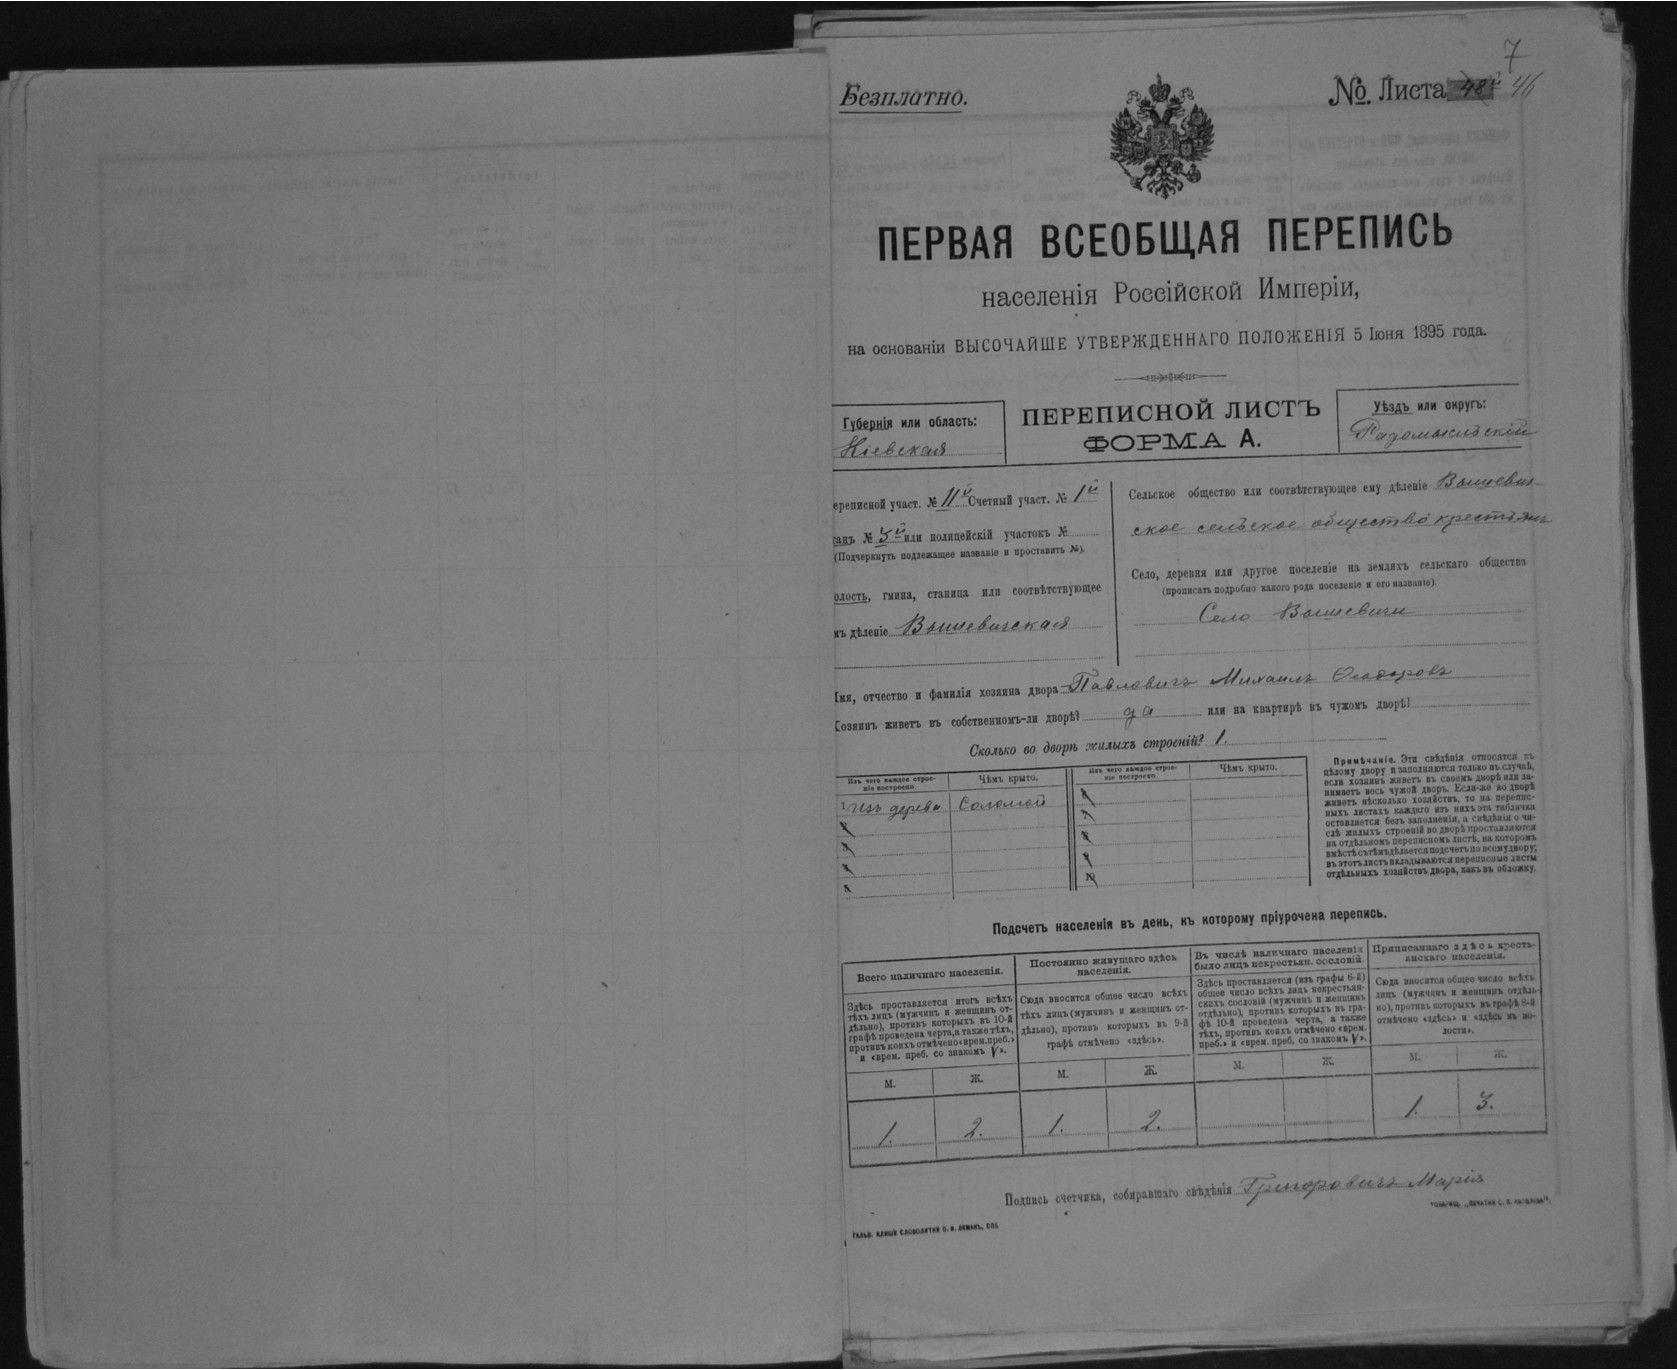 7
Безплатно.
№ Листа 48й 46
ПЕРВАЯ ВСЕОБЩАЯ ПЕРЕПИСЬ
населенія Россійской Имперіи,
на основаніи ВЫСОЧАЙШЕ УТВЕРЖДЕННАГО ПОЛОЖЕНІЯ 5 Іюня 1895 года.
Губернія или область:
Кіевская
ПЕРЕПИСНОЙ ЛИСТЪ
ФОРМА А.
Уѣздъ или округъ:
Радомысльскій
ереписной участ. № 11й Счетный участ. № 1й
танъ № 5й или полицейскій участокъ №
(Подчеркнуть подлежащее названіе и проставить №).
олость, гмина, станица или соотвѣтствующее
мъ дѣленіе Вышевичская
Сельское общество или соотвѣтствующее ему дѣленіе Вышевич-
ское сельское общество крестьянъ
Село, деревня или другое поселеніе на земляхъ сельскаго общества
(прописать подробно какого рода поселеніе и его названіе)
Село Вышевичи
Имя, отчество и фамилія хозяина двора Павловичъ Михаилъ Ѳеодоровъ
Хозяинъ живетъ въ собственномъ-ли дворѣ? да или на квартирѣ въ чужомъ дворѣ?
Сколько во дворѣ жилыхъ строеній? 1.
Изъ чего каждое строе-
ніе построено.
Чѣмъ крыто.
Изъ чего каждое строе-
ніе построено.
Чѣмъ крыто.
1 Изъ дерева Соломой
2
3
4
5
6
7
8
9
10
Примѣчаніе. Эти свѣдѣнія относятся къ
цѣлому двору и заполняются только въ случаѣ,
если хозяинъ живетъ въ своемъ дворѣ или за-
нимаетъ весь чужой дворъ. Если-же во дворѣ
живетъ нѣсколько хозяйствъ, то на перепис-
ныхъ листахъ каждаго изъ нихъ эта табличка
оставляется безъ заполненія, а свѣдѣнія о чи-
слѣ жилыхъ строеній во дворѣ проставляются
на отдѣльномъ переписномъ листѣ, на которомъ
вмѣстѣ съ тѣмъ дѣлается подсчетъ по всему двору;
въ этотъ листъ вкладываются переписные листы
отдѣльныхъ хозяйствъ двора, какъ въ обложку.
Подсчетъ населенія въ день, къ которому пріурочена перепись.
Всего наличнаго населенія.
Здѣсь проставляется итогъ всѣхъ
тѣхъ лицъ (мужчинъ и женщинъ от-
дѣльно), противъ которыхъ въ 10-й
графѣ проведена черта, а также тѣхъ,
противъ коихъ отмѣчено «врем. преб.»
и «врем. преб. со знакомъ V».
Постоянно живущаго здѣсь
населенія.
Сюда вносится общее число всѣхъ
тѣхъ лицъ (мужчинъ и женщинъ от-
дѣльно), противъ которыхъ въ 9-й
графѣ отмѣчено «здѣсь».
Въ числѣ наличнаго населенія
было лицъ некрестьян. сословій.
Здѣсь проставляется (изъ графы 6-й)
общее число всѣхъ лицъ некрестьян-
скихъ сословій (мужчинъ и женщинъ
отдѣльно), противъ которыхъ въ гра-
фѣ 10-й проведена черта, а также
тѣхъ, противъ коихъ отмѣчено «врем.
преб.» и «врем. преб. со знакомъ V».
Приписаннаго здѣсь кресть-
янскаго населенія.
Сюда вносится общее число всѣхъ
лицъ (мужчинъ и женщинъ отдѣль-
но), противъ которыхъ въ графѣ 8-й
отмѣчено «здѣсь» и «здѣсь въ во-
лости».
М. Ж. М. Ж. М. Ж. М. Ж.
1. 2. 1. 2. 1. 3.
Подпись счетчика, собиравшаго свѣдѣнія Григоровичъ Марія
ГАЛЬВ. КЛИШЕ СЛОВОЛИТНИ О. И. ЛЕМАНЪ, СПБ